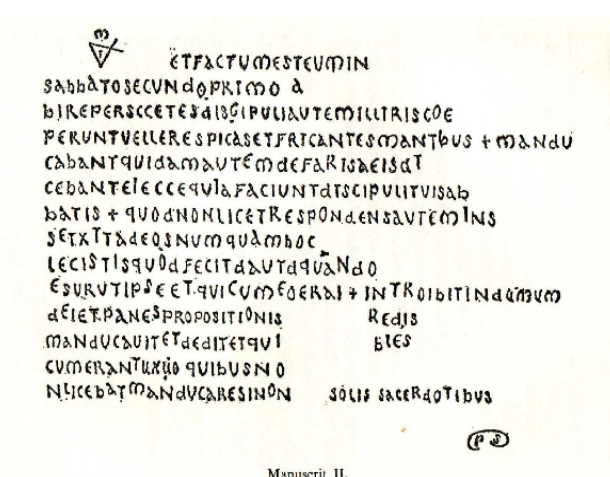 ETFACTUMESTEUMIN
SABBATOSECUNDOPRIMO A
BIREPERSCCETESDISCIPULIAUTEMILLITRISCOE
PERUNTVELLERESPICASETFRICANTESMANTBUS + MANDU
CABANTQUIDAMAUTEMDEFARISAEISDT
CEBANTEIECCEQUIAFACIUNTDTSCIPULITUISAB
BATIS + QUODNONLICETRESPONDENSAUTEMINS
SETXTTADEOSNUMQUAMBOC
LECISTISQUODFECITDAUTDQUANDO
ESURUTIPSEETQUICUMEOERAI + INTROIBITINDUMUM
DEIETPANESPROPOSITIONIS REDIS
MANDUCAUITETDEDITETQUI BLES
CUMERANTUXUO QUIBUSNO
NLICEBATMANDUCARESINON SOLIS SACERDOTIBUS
PS
Manuscrit II.